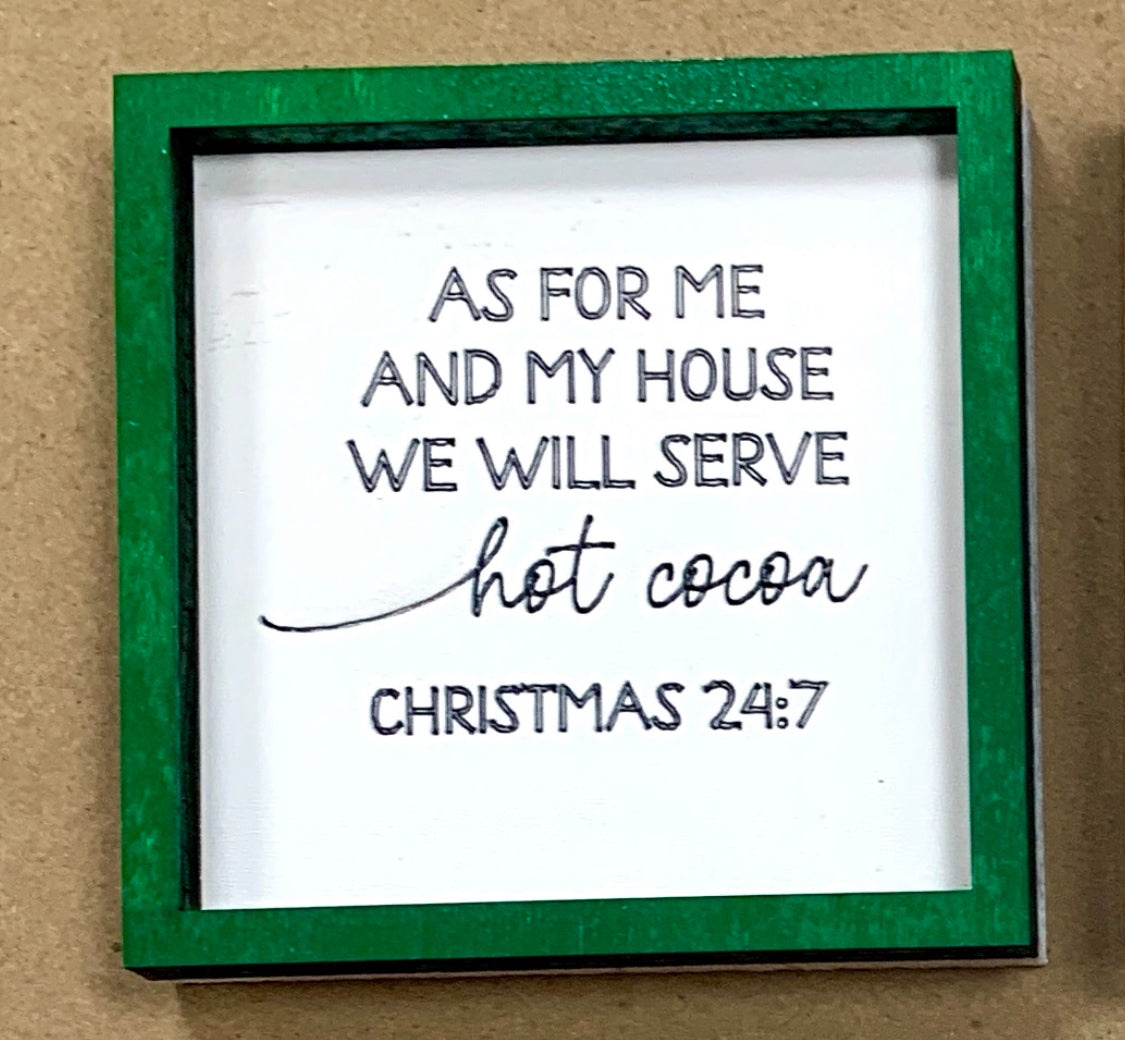 AS FOR ME
AND MY HOUSE
WE WILL SERVE
hot cocoa
CHRISTMAS 24:7